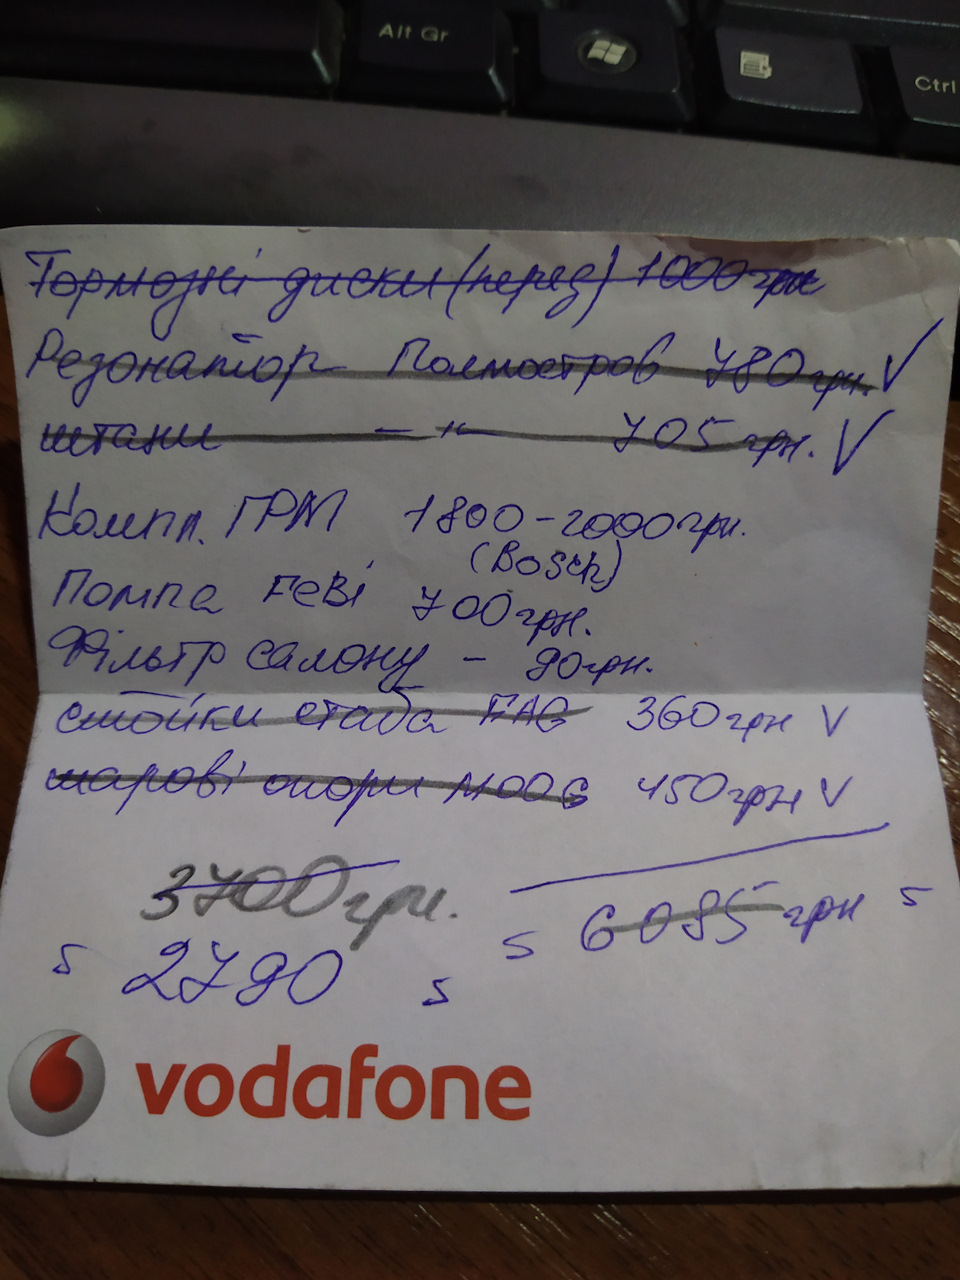 Alt Gr
Ctrl
Тормозні диски (перед) 1000 грн
Резонатор Полмостров 780 грн. V
штани – " – 705 грн. V
Компл. ГРМ 1800-2000 грн.
(Bosch)
Помпа FeBi 700 грн.
Фільтр салону - 90 грн.
стойки стаба FAG 360 грн V
шарові опори MOOG 450 грн V
3700 грн.
6085 грн
2790
vodafone